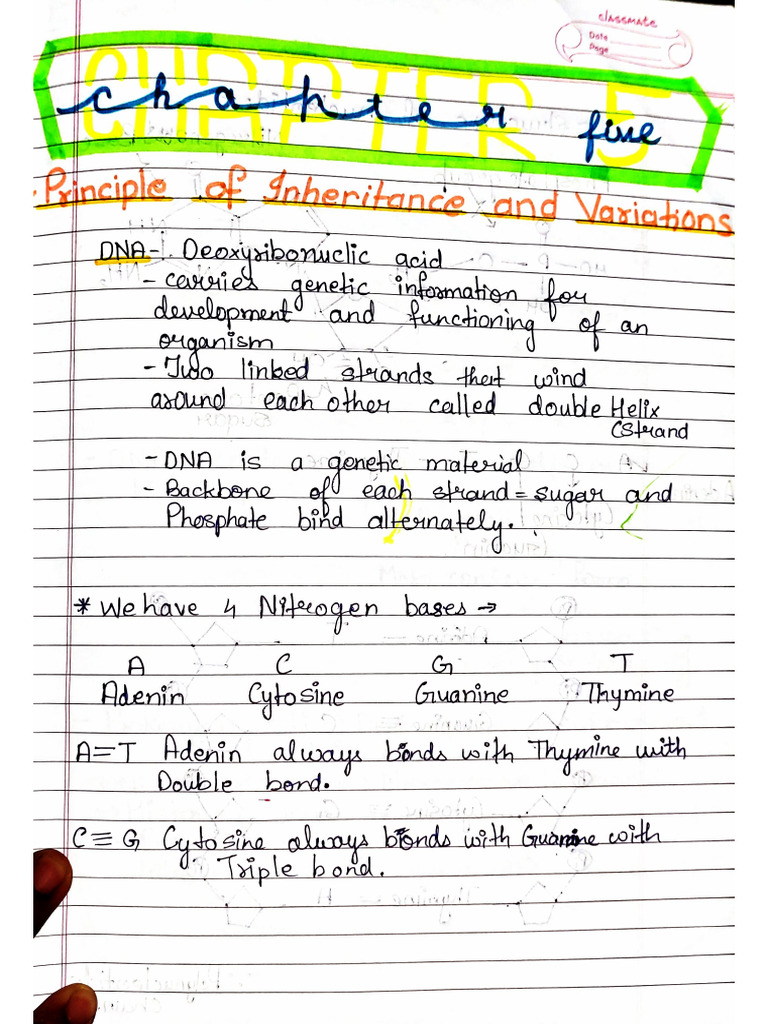 classmate
Date
Page
CHAPTER 5
chapter five
Principle of Inheritance and Variations
DNA - Deoxyribonuclic acid
- carries genetic information for
development and functioning of an
organism
- Two linked strands that wind
around each other called double Helix
(Strand
- DNA is a genetic material
- Backbone of each strand = sugar and
Phosphate bind alternately.
* We have 4 Nitrogen bases →
A C G T
Adenin Cytosine Guanine Thymine
A=T Adenin always bonds with Thymine with
Double bond.
C≡G Cytosine always bonds with Guanine with
Triple bond.